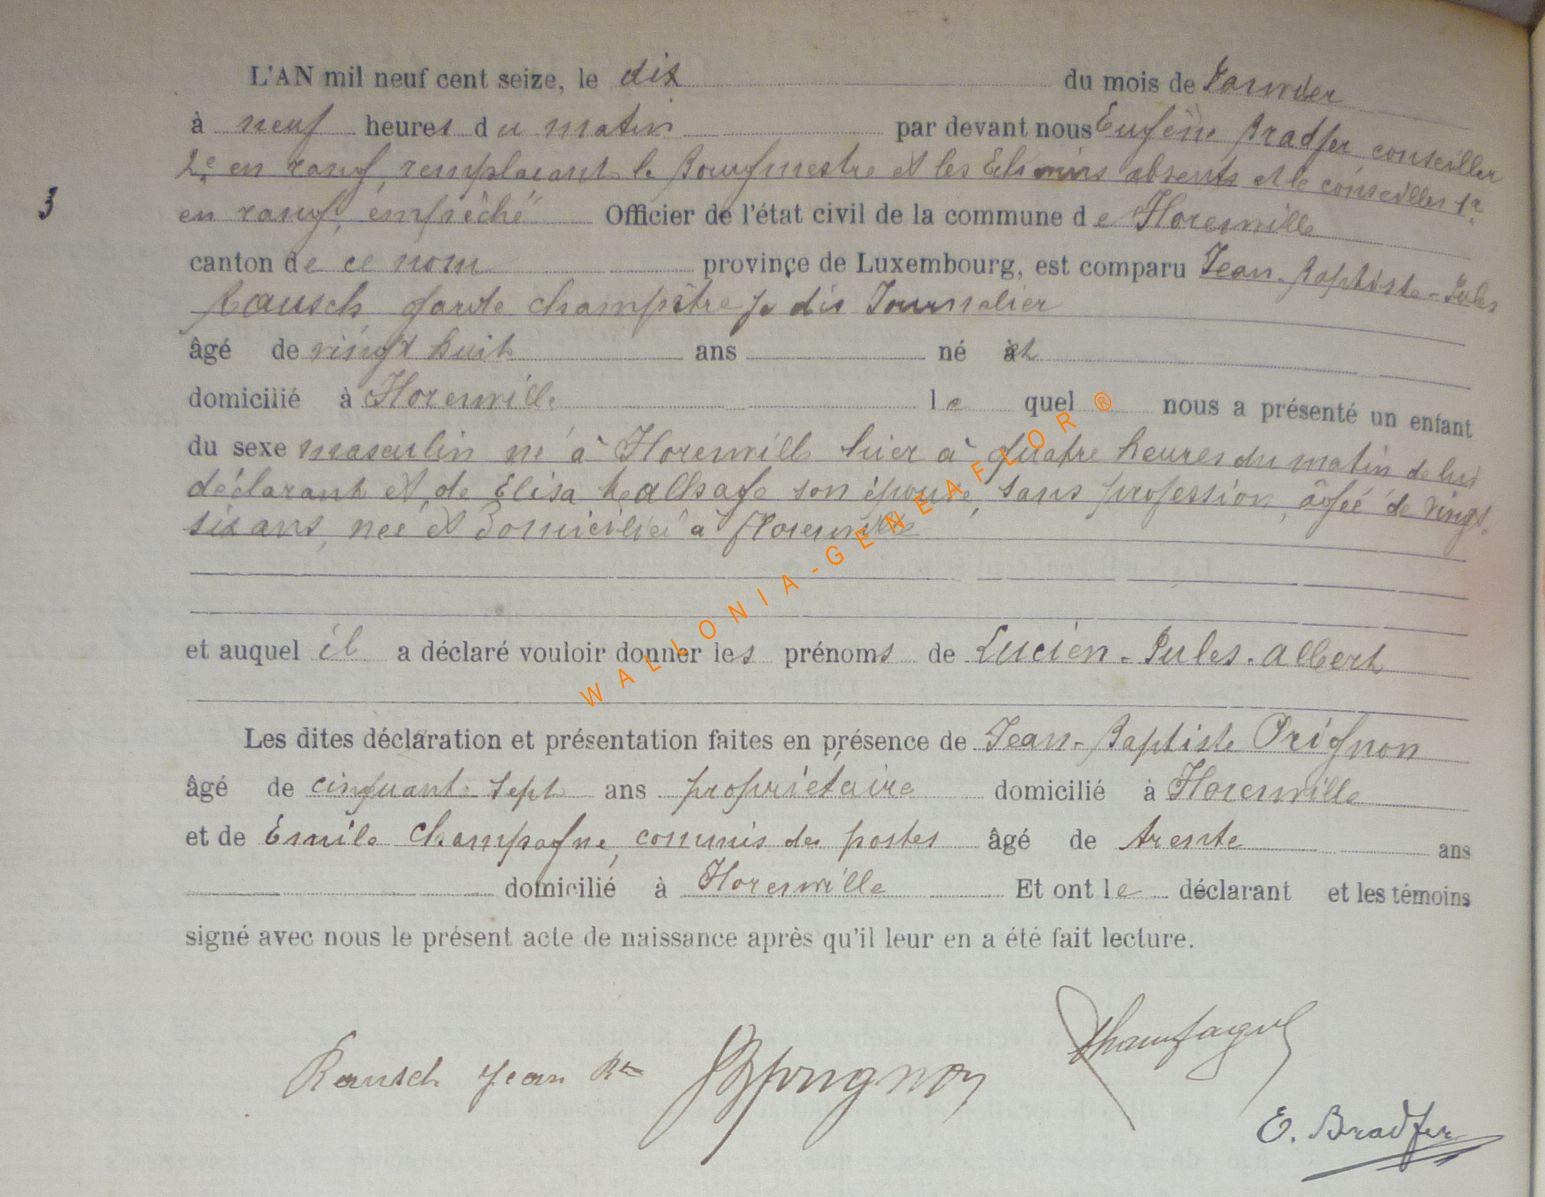 L'AN mil neuf cent seize, le dix du mois de Janvier
à neuf heures du matin par devant nous Eugène Bradfer conseiller
2e en rang, remplacant le Bourgmestre et les Echevins absents et le conseiller 1r
3
en rang, empêché Officier de l'état civil de la commune de Florenville
canton de ce nom province de Luxembourg, est comparu Jean-Baptiste-Jules
Rausch garde champêtre je dis Journalier
âgé de vingt huit ans né et
domicilié à Florenville lequel nous a présenté un enfant
du sexe masculin né à Florenville hier à quatre heures du matin de lui
déclarant et de Elisa son épouse, sans profession, âgée de vingt
six ans, née et domiciliée à Florenville
et auquel il a déclaré vouloir donner les prénoms de Lucien-Jules-Albert
Les dites déclaration et présentation faites en présence de Jean-Baptiste Orignon
âgé de cinquante-sept ans propriétaire domicilié à Florenville
et de Emile Champagne, commis des postes âgé de trente ans
domicilié à Florenville Et ont le déclarant et les témoins
signé avec nous le présent acte de naissance après qu'il leur en a été fait lecture.
Rausch Jean Bte
Champagne
E. Bradfer
WALLONIA-GENEAFLOR ®